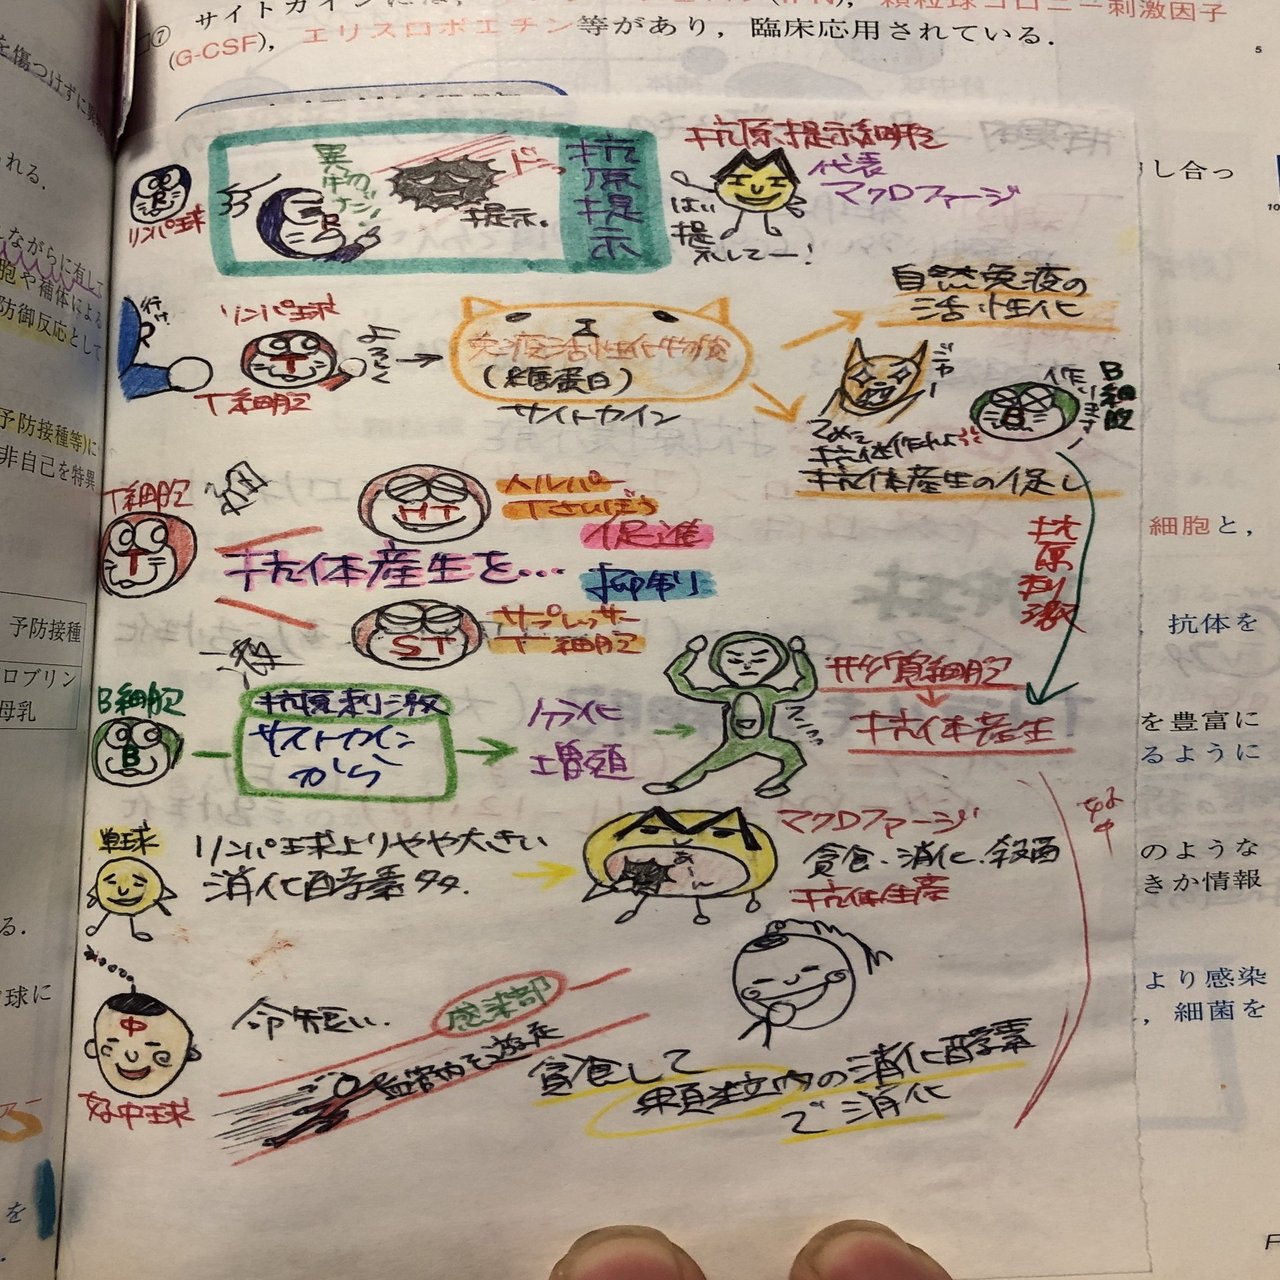 (G-CSF), エリスロポエチン等があり，臨床応用されている.
を傷つけずに
れる.
しながらに有して
胞や補体による
防御反応として
予防接種等)に
非自己を特異
予防接種
ロブリン
母乳
球に
を
し合っ
細胞と,
抗体を
を豊富に
るように
のような
きか情報
より感染
, 細菌を
抗原提示
異物のデータ
提示。
R
リンパ球
抗原提示細胞
代表
マクロファージ
はい
提示してー!
行け
R
リンパ球
T
T細胞
よろしく
免疫活性化物質
(糖蛋白)
サイトカイン
自然免疫の
活性化
ジャー
てめえ
抗体作れよ
抗体産生の促し
B
作ります
B細胞
抗原刺激
T細胞
T
HT
ヘルパー
Tさいぼう
促進
抗体産生を…
抑制
ST
サプレッサー
T細胞
B細胞
B
抗原刺激
サイトカイン
から
分化
増殖
形質細胞
抗体産生
単球
リンパ球よりやや大きい
消化酵素多々.
あーん
マクロファージ
貪食・消化・殺菌
抗体生産
中
好中球
命短い.
感染部
血管内を遊走
貪食して
顆粒内の消化酵素
で消化